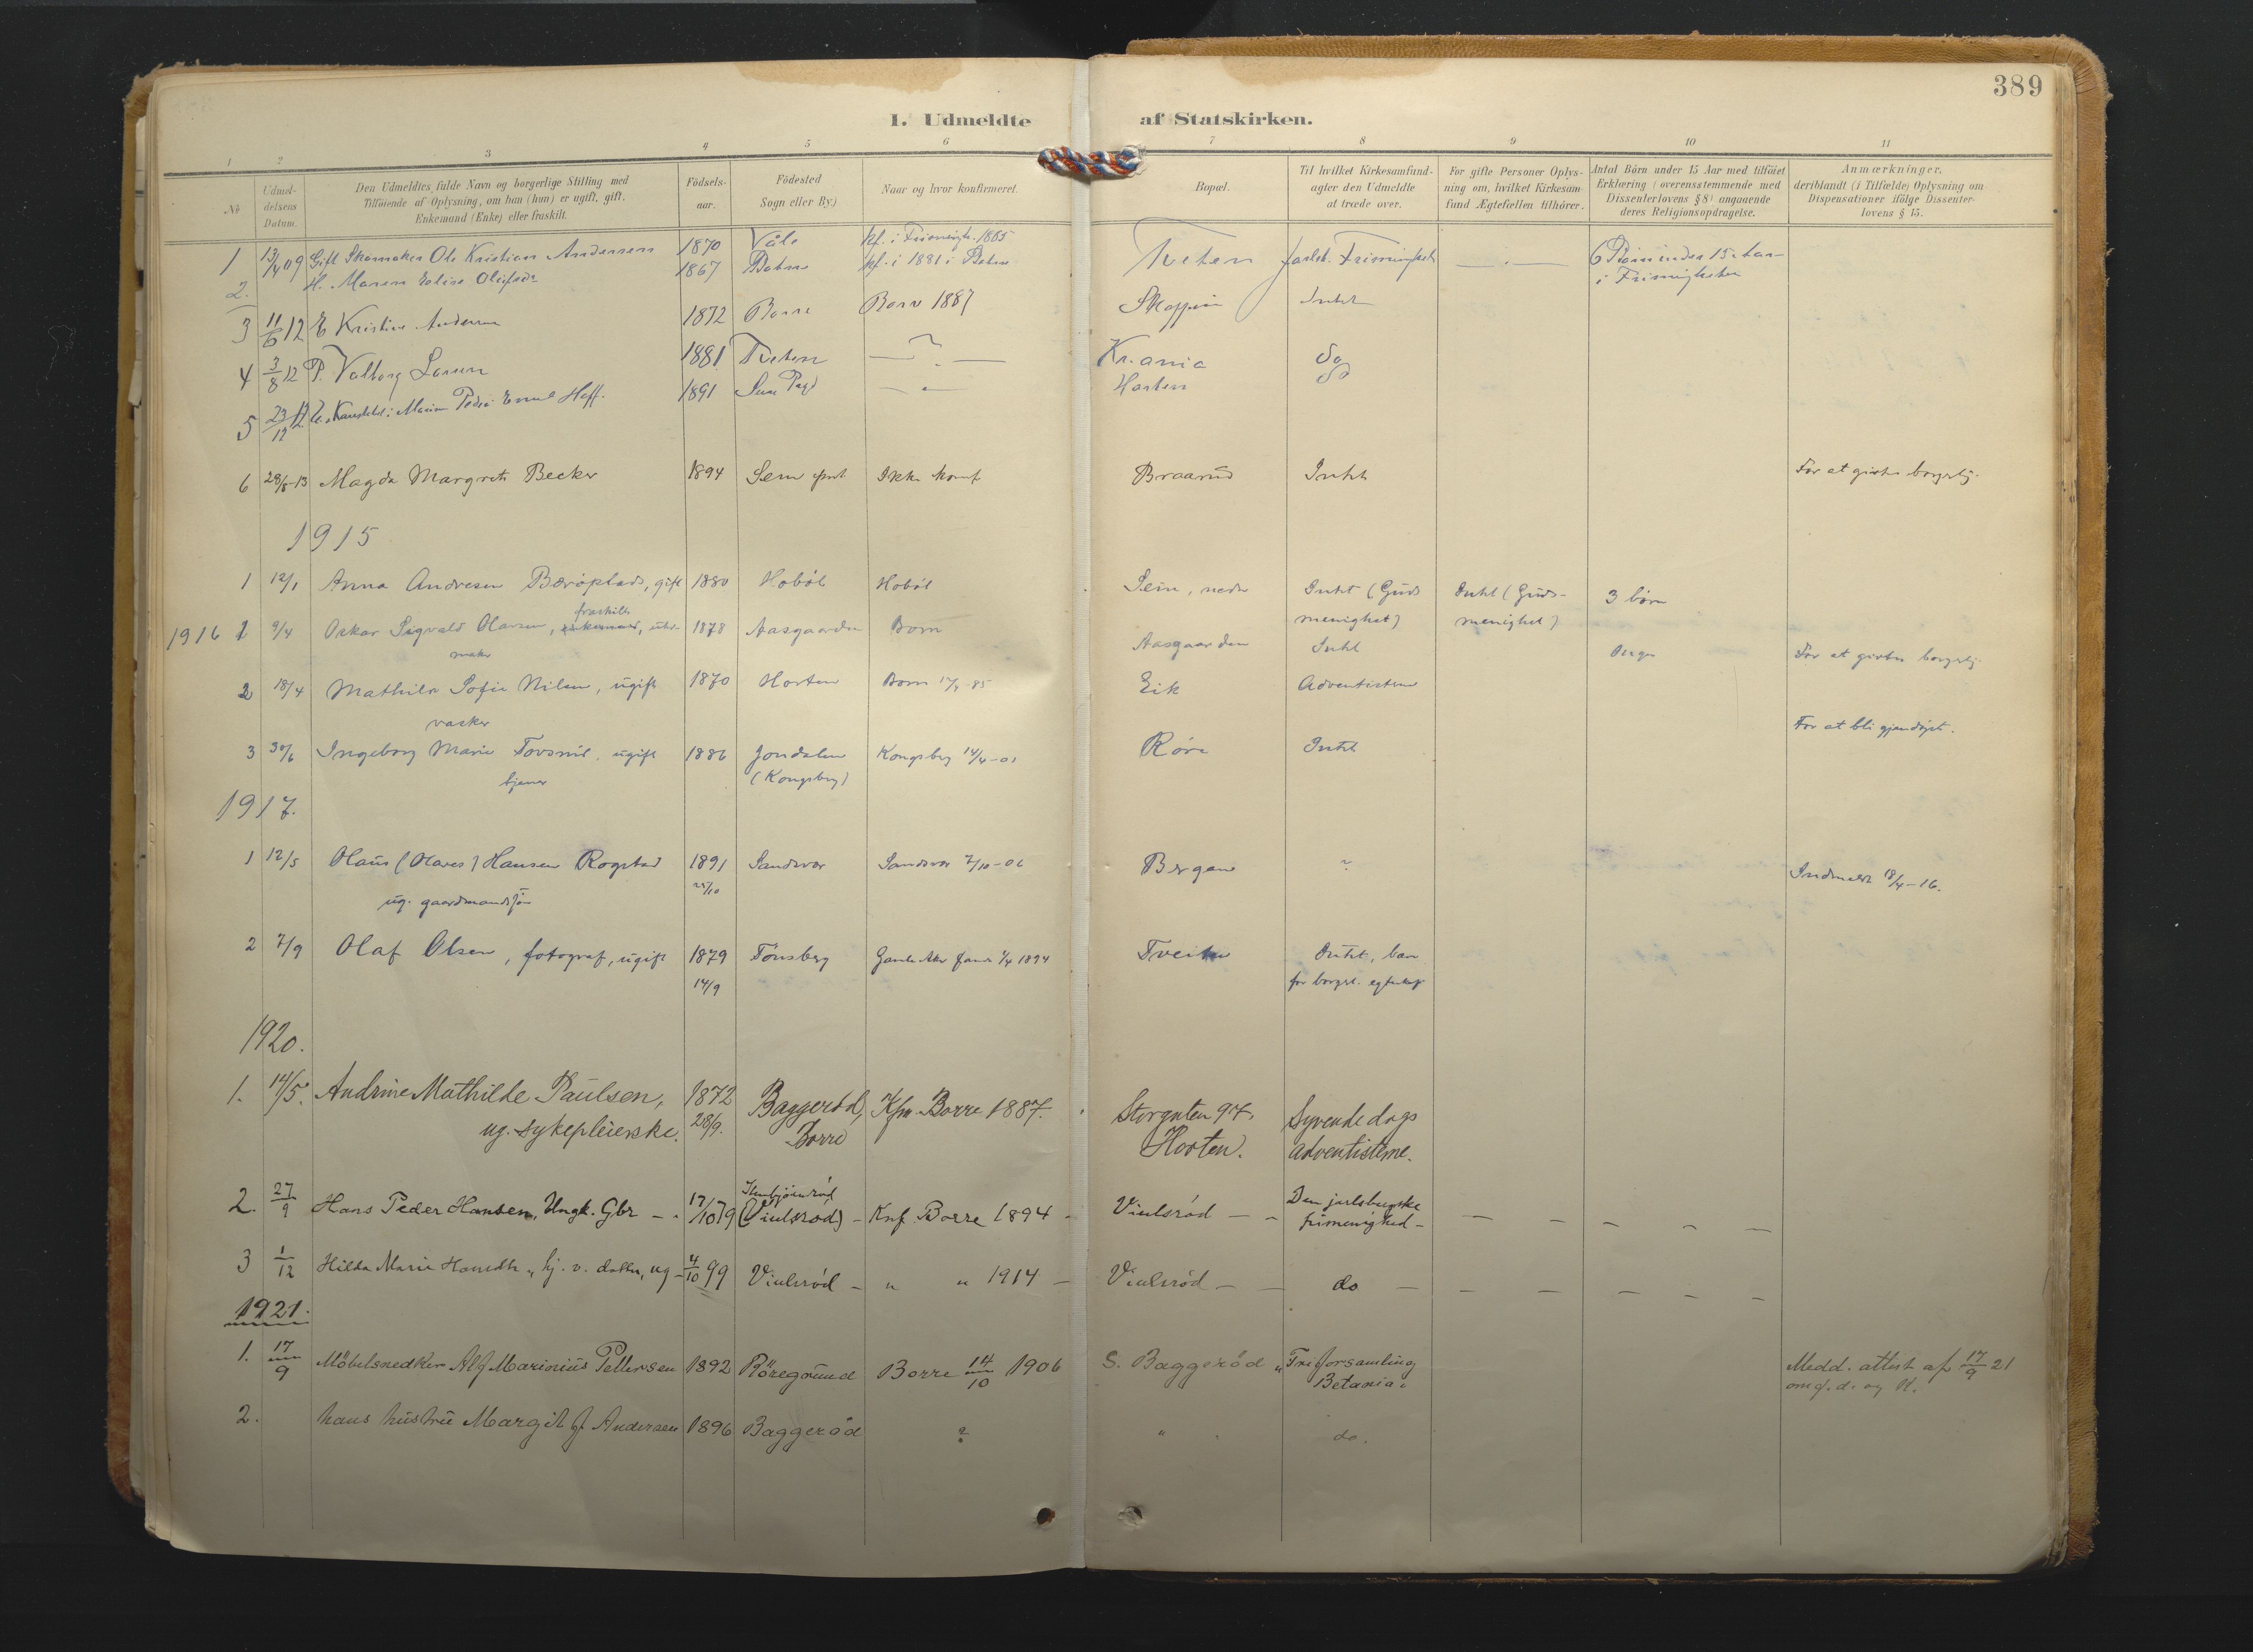 389
1. Udmeldte af Statskirken.
1 2 3 4 5 6 7 8 9 10 11
No.
Udmeldelsens Datum.
Den Udmeldtes fulde Navn og borgerlige Stilling med
Tilføiende af Oplysning, om han (hun) er ugift, gift,
Enkemand (Enke) eller fraskilt.
Fødselsaar.
Fødested
Sogn eller By.)
Naar og hvor konfirmeret.
Bopæl.
Til hvilket Kirkesamfund
agter den Udmeldte
at træde over.
For gifte Personer Oplysning
om, hvilket Kirkesamfund
Ægtefællen tilhører.
Antal Børn under 15 Aar med tilføiet
Erklæring (overensstemmende med
Dissenterlovens § 8) angaaende
deres Religionsopdragelse.
Anmærkninger,
deriblandt (i Tilfælde) Oplysning om
Dispensationer ifølge Dissenterlovens § 15.
1 13/4 09 Gift Skomaker Ole Kristian Andersen 1870 Våle kf. i Frimenigh. 1885 Tveten Jarlsb. Frimenighet 6 Børn under 15 Aar
2. H. Maren Eline 1867 kf. i 1881 i i Frimenigheten
3 11/6 12 E Kristine Andersen 1872 Borre Borre 1887 Skoppum Intet
4 3/8 12 P. Valborg Larsen 1881 Tveten Kr.ania Do
5 23/12 12 1891 Sem Horten Do
6 28/8-13 Magda Margrete Becker 1894 Sem Ikke konf Braarud Intet For at giftes borgerlig.
1915
1 12/1 Anna Andresen, gift 1880 Hobøl Hobøl Sem, nedre Intet (Guds Intet (Guds- 3 børn
menighet) menighet)
fraskilt
1916 1 9/4 Oskar Sigvald Olavsen, 1878 Aasgaarden Borre Aasgaarden Intet Ingen For at giftes borgerlig.
maker
2 18/4 Mathilde Sofie Nilsen, ugift 1870 Horten Borre 85 Eik Adventisterne
vasker For at bli gjendøpt.
3 30/6 Ingeborg Marie, ugift 1886 Jondalen Kongsberg 14/4-01 Røre Intet
tjener (Kongsberg)
1917.
1 12/5 Olaus (Olaves) Hansen Rogstad 1891 Sandsvær Sandsvær 7/10-06 Bergan ? Indmeldt 18/4-16.
ug. gaardmandssøn 25/10
2 7/9 Olaf Olsen, fotograf, ugift 1879 Tønsberg Gamle Aker 1894 Tveiten Intet, bare
14/9 for borgerl. egteskap
1920.
1. 14/5. Andrine Mathilde Paulsen, 1872 Baggerød, Kfm. Borre 1887. Storgaten 97, Syvende dags
ug. sykepleierske. 28/9. Borre Horten. adventisterne.
2. 27/9 Hans Peder Hansen, Ungk. Gbr 17/10 79 (Viulsrød) Knf. Borre 1894 Viulsrød Den jarlsbergske
frimenighed
3 1/12 Hilda Marie Hansdtr., hj. v. datter, ug 4/10 99 Viulsrød " " 1914 Viulsrød do
1921.
1. 17/9 Möbelsnedker Alf Marinius Pettersen 1892 Röregrund Borre 14/10 1906 S. Baggeröd "Friforsamling Medd. attest af 17/9 21
Betania"
2. hans hustru Margit f. Andersen 1896 Baggeröd ? " do.